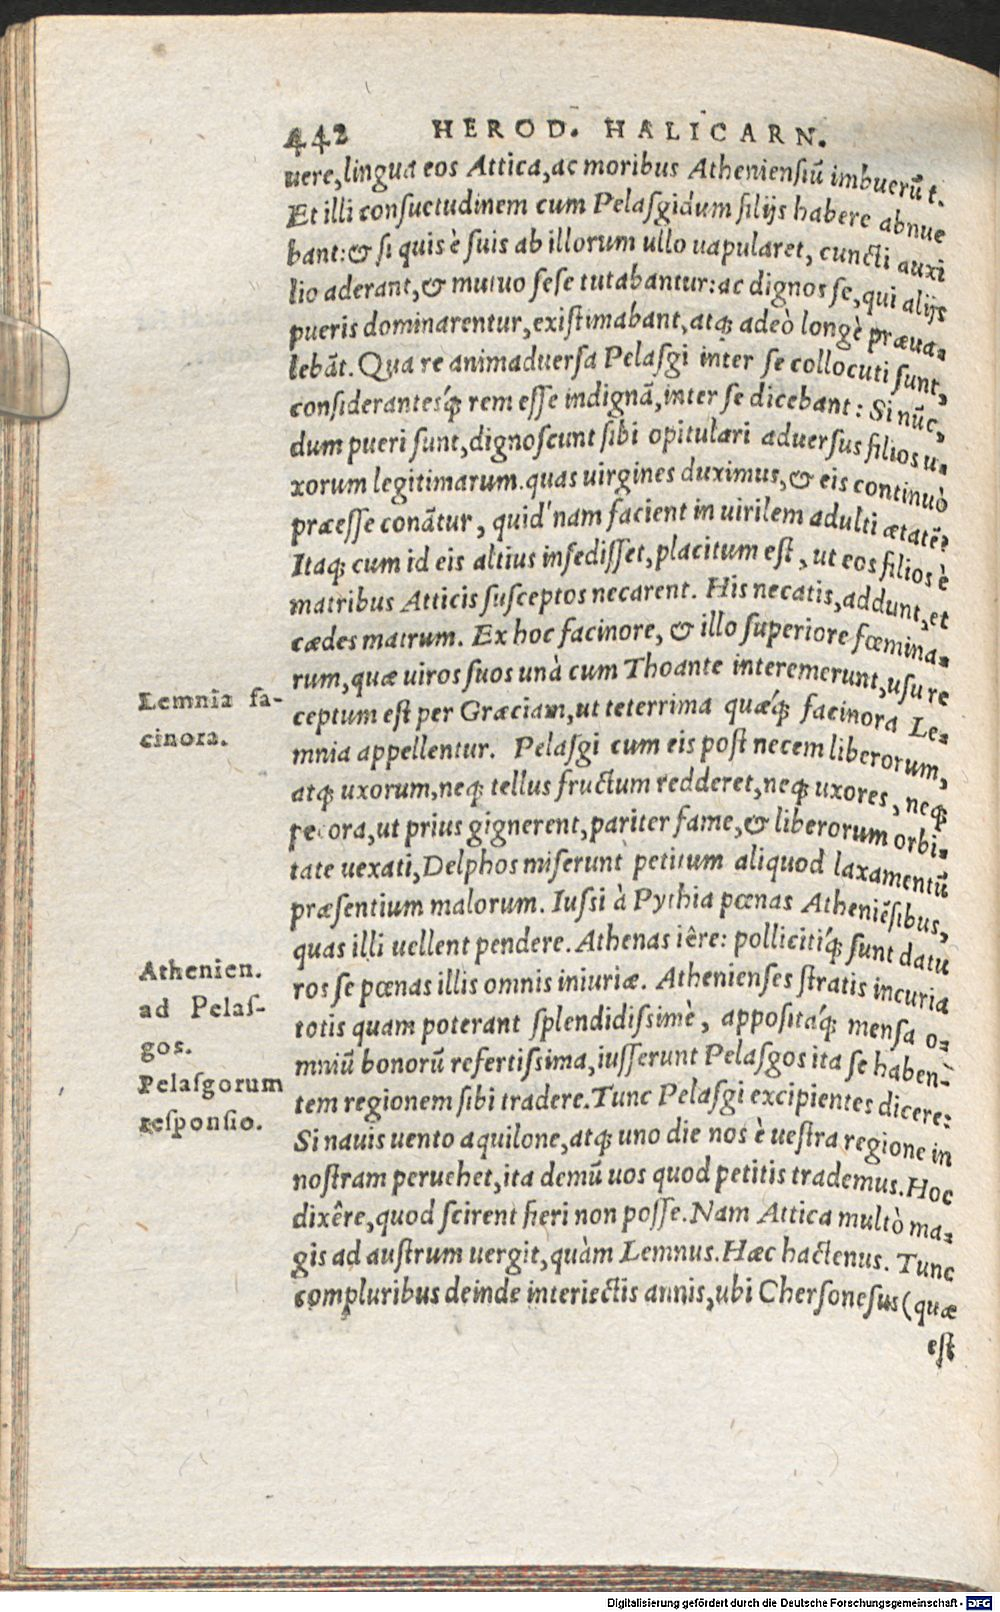 442 HEROD. HALICARN.
uere, lingua eos Attica, ac moribus Atheniensiū imbuerūt.
Et illi consuetudinem cum Pelasgidum filijs habere abnue
bant: & si quis è suis ab illorum ullo uapularet, cuncti auxi
lio aderant, & mutuo sese tutabantur: ac dignos se, qui alijs
pueris dominarentur, existimabant, atq; adeò longè præua-
lebāt. Qua re animaduersa Pelasgi inter se collocuti sunt,
considerantesq́; rem esse indignā, inter se dicebant: Si nūc,
dum pueri sunt, dignoscunt sibi opitulari aduersus filios u-
xorum legitimarum. quas uirgines duximus, & eis continuò
præesse conātur, quid'nam facient in uirilem adulti ætatē?
Itaq; cum id eis altius insedisset, placitum est, ut eos filios è
matribus Atticis susceptos necarent. His necatis, addunt, et
cædes matrum. Ex hoc facinore, & illo superiore fœmina-
rum, quæ uiros suos unà cum Thoante interemerunt, usu re
Lemnia fa-
cinora.
ceptum est per Græciam, ut teterrima quæq́; facinora Le-
mnia appellentur. Pelasgi cum eis post necem liberorum,
atq; uxorum, neq; tellus fructum redderet, neq; uxores, neq;
pecora, ut prius gignerent, pariter fame, & liberorum orbi-
tate uexati, Delphos miserunt petitum aliquod laxamentū
præsentium malorum. Iussi à Pythia pœnas Atheniēsibus,
quas illi uellent pendere. Athenas iêre: pollicitiq́; sunt datu
Athenien.
ad Pelas-
gos.
Pelasgorum
responsio.
ros se pœnas illis omnis iniuriæ. Athenienses stratis incuria
totis quam poterant splendidissimè, appositaq́; mensa o-
mniū bonorū refertissima, iusserunt Pelasgos ita se haben-
tem regionem sibi tradere. Tunc Pelasgi excipientes dicere:
Si nauis uento aquilone, atq; uno die nos è uestra regione in
nostram peruehet, ita demū uos quod petitis trademus. Hoc
dixêre, quod scirent fieri non posse. Nam Attica multò ma-
gis ad austrum uergit, quàm Lemnus. Hæc hactenus. Tunc
compluribus deinde interiectis annis, ubi Chersonesus (quæ
est
Digitalisierung gefördert durch die Deutsche Forschungsgemeinschaft - DFG